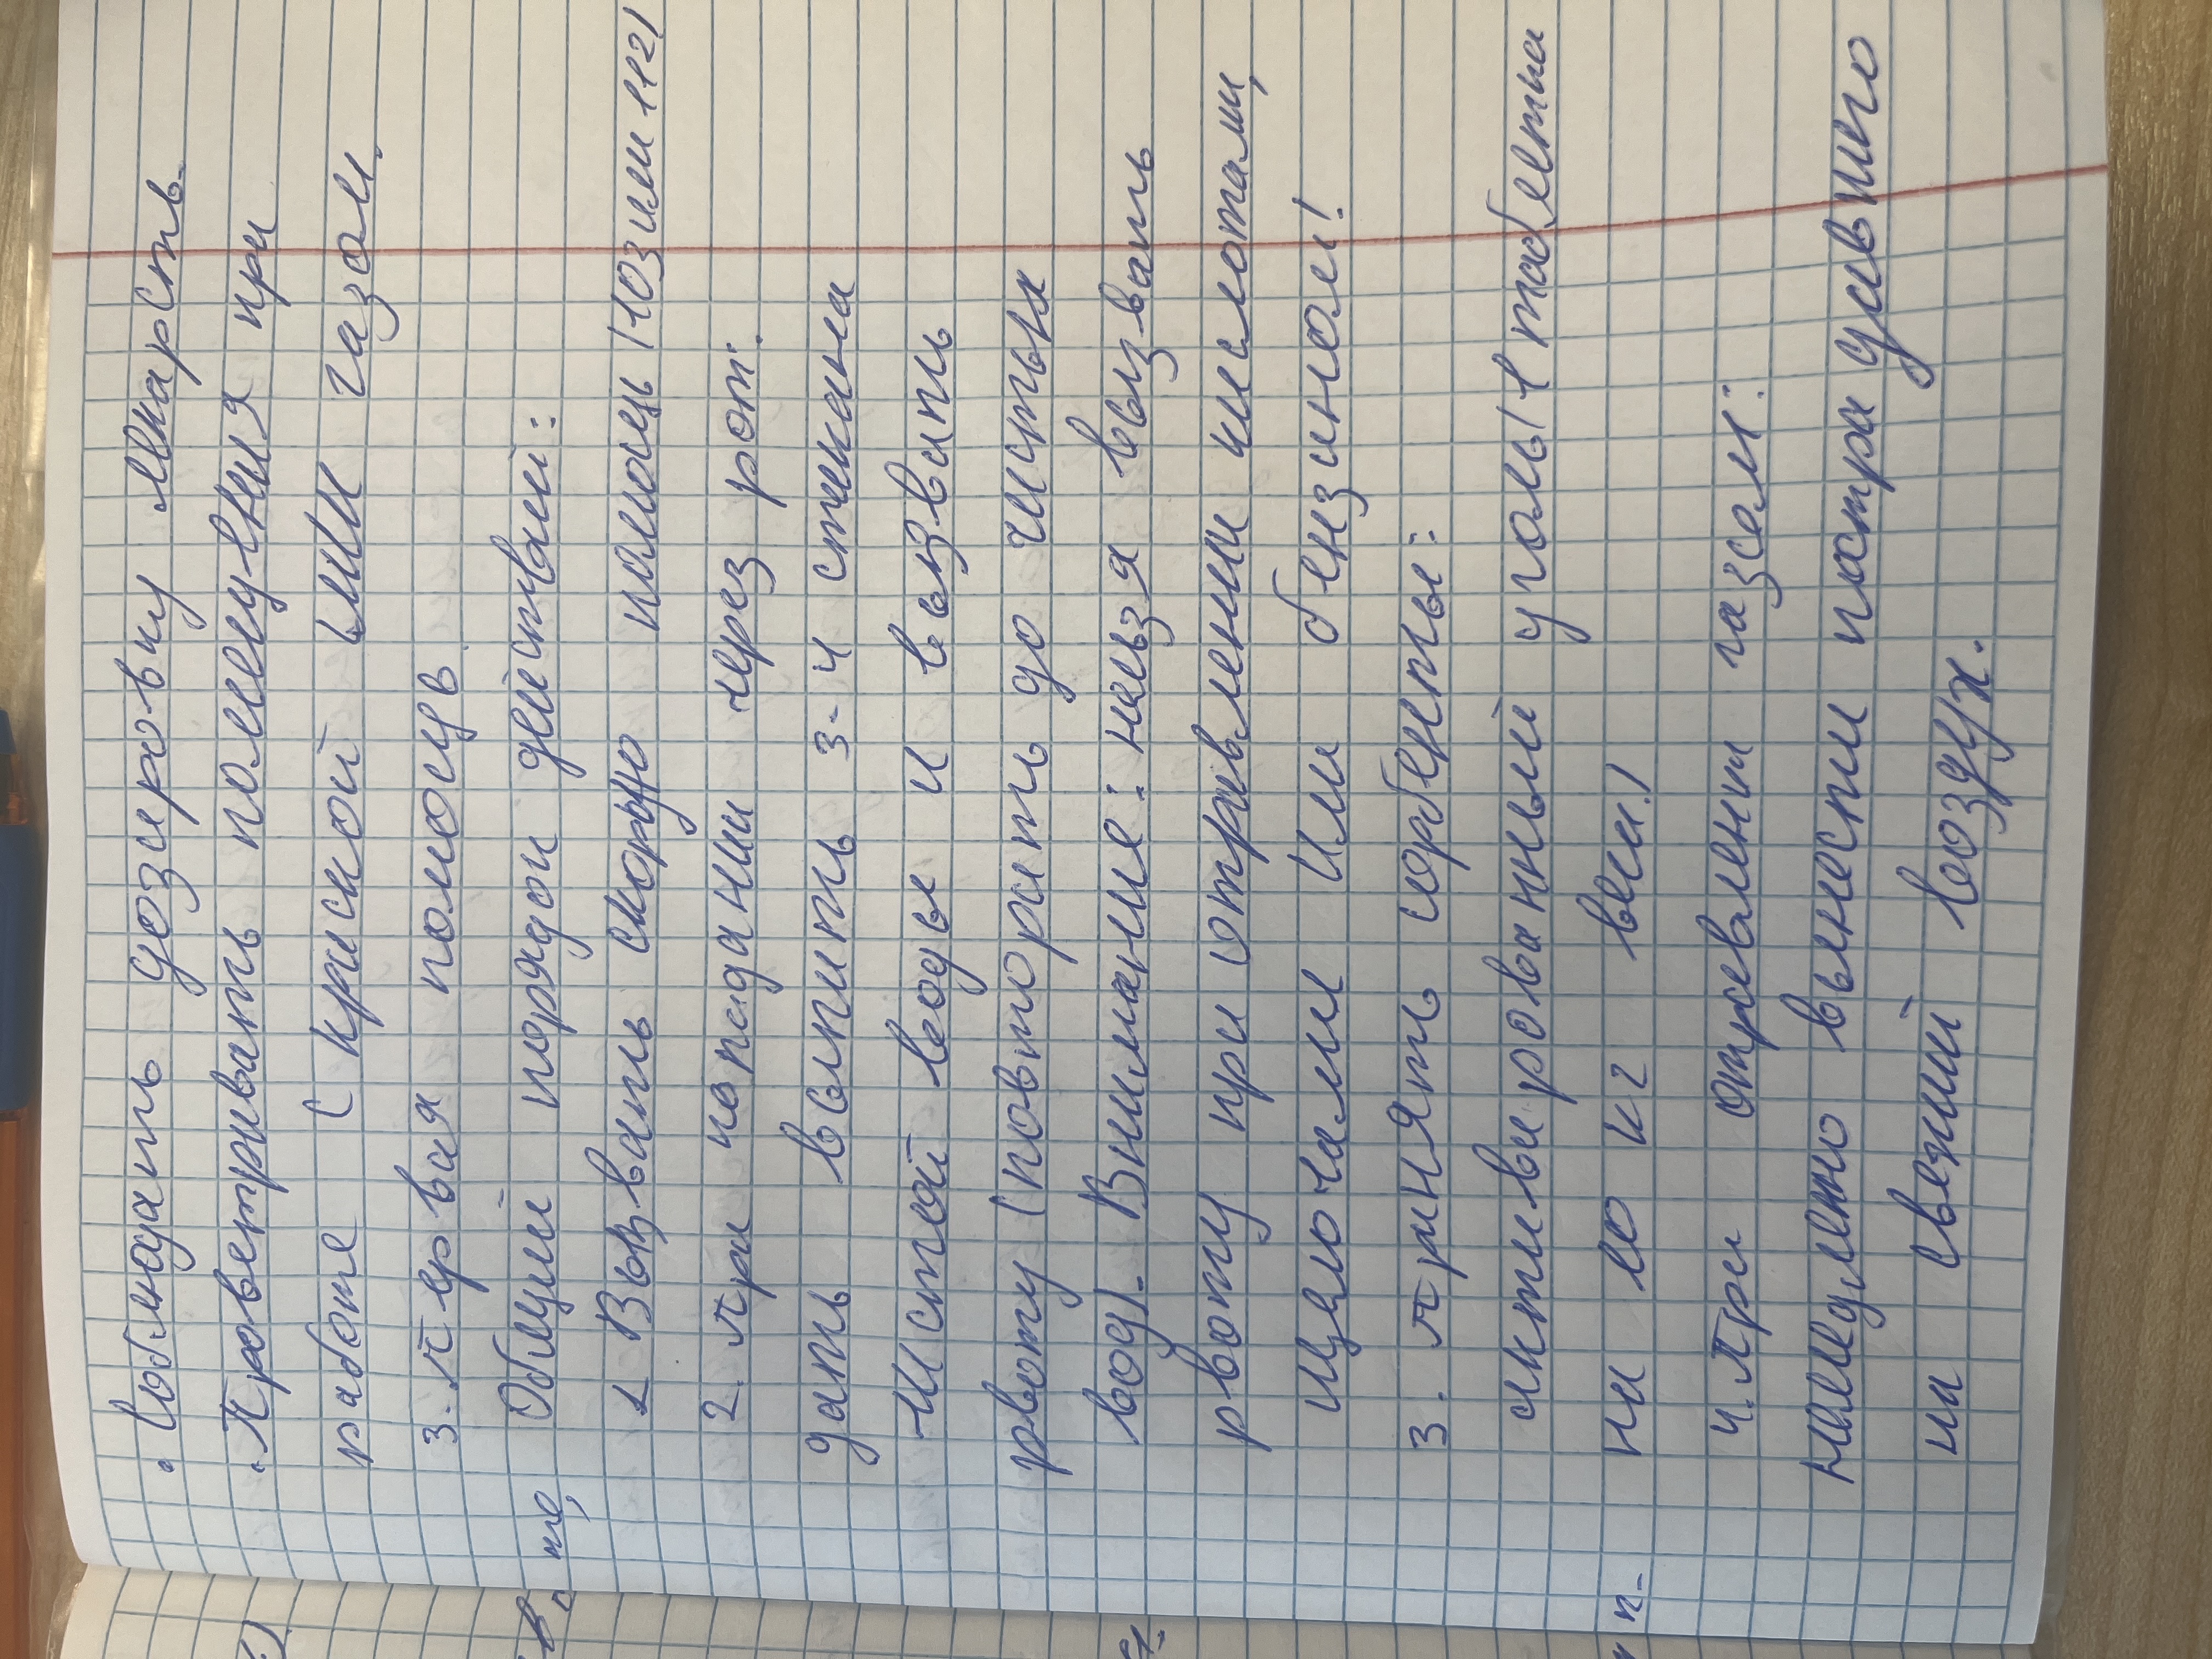 · Соблюдать дозировку лекарств.
· Проветривать помещения при
работе с краской или газом.
3. Первая помощь.
Общий порядок действий:
1. Вызвать скорую помощь (103 или 112)
2. При попадании через рот:
дать выпить 3-4 стакана
чистой воды и вызвать
рвоту (повторять до чистых
вод). Внимание: нельзя вызвать
рвоту при отравлении кислотами,
щелочами или бензином!
3. Принять сорбенты:
активированный уголь (1 таблетка
на 10 кг веса)
4. При отравлении газом:
немедленно вынести пострадавшего
на свежий воздух.